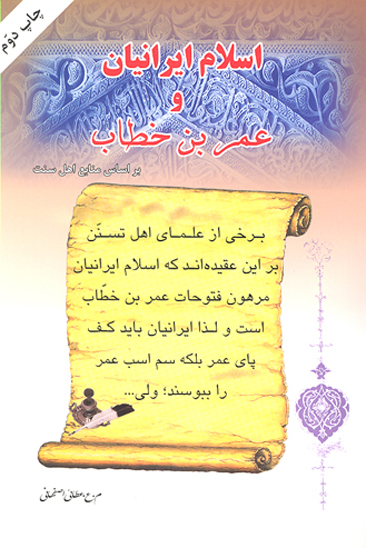 چاپ دوّم
اسلام ایرانیان
و
عمر بن خطاب
بر اساس منابع اهل سنت
برخی از علمای اهل تسنّن
بر این عقیده‌اند که اسلام ایرانیان
مرهون فتوحات عمر بن خطّاب
است و لذا ایرانیان باید کف
پای عمر بلکه سم اسب عمر
را ببوسند؛ ولی...
م.ع.عطائی اصفهانی